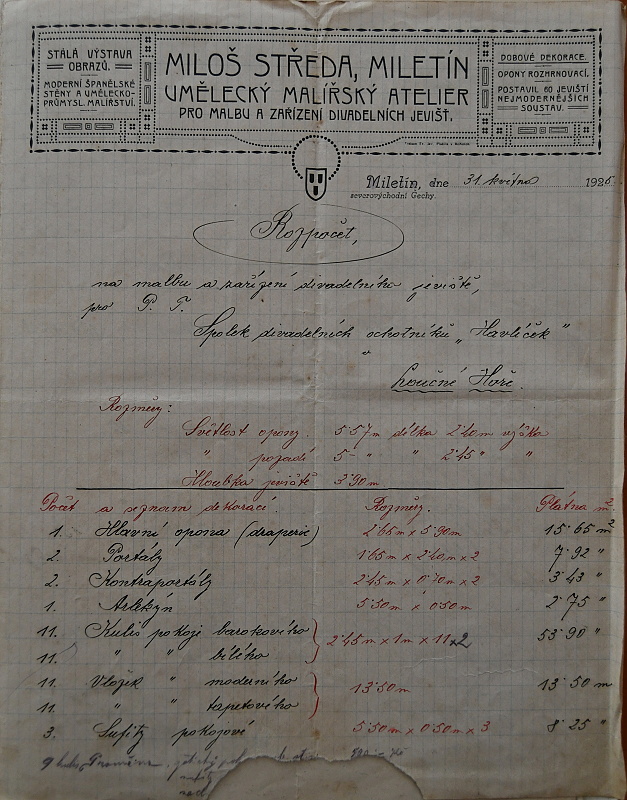 STÁLÁ VÝSTAVA
OBRAZŮ.
MODERNÍ ŠPANĚLSKÉ
STĚNY A UMĚLECKO-
PRŮMYSL. MALÍŘSTVÍ.
MILOŠ STŘEDA, MILETÍN
UMĚLECKÝ MALÍŘSKÝ ATELIER
PRO MALBU A ZAŘÍZENÍ DIVADELNÍCH JEVIŠŤ.
DOBOVÉ DEKORACE.
OPONY ROZHRNOVACÍ.
POSTAVIL 60 JEVIŠTÍ
NEJMODERNĚJŠÍCH
SOUSTAV.
Miletín, dne 31. května 1925.
severovýchodní Čechy.
Rozpočet,
na malbu a zařízení divadelního jeviště,
pro P. T.
Spolek divadelních ochotníků „Havlíček"
v
Loučné Hoře.
Rozměry:
Světlost opony. 5·57m délka 2·40m výška
" pozadí 5·- " " 2·45 " "
Hloubka jeviště 3·90m
Počet a seznam dekorací. Rozměry. Plátna m²
1. Hlavní opona (draperie) 2·65m x 5·90m 15·65 m²
2. Portály 1·65m x 2·40m x 2 7·92 "
2. Kontraportály 2·45m x 0·70m x 2 3·43 "
1. Arlekýn 5·50m x 0·50m 2·75 "
11. Kulis pokoje barokového 2·45m x 1m x 11 x 2 53·90 "
11. " " bílého
11. Vložek " moderního 13·50m 13·50 m
11. " " tapetového
3. Sufity pokojové 5·50m x 0·50m x 3 8·25 "